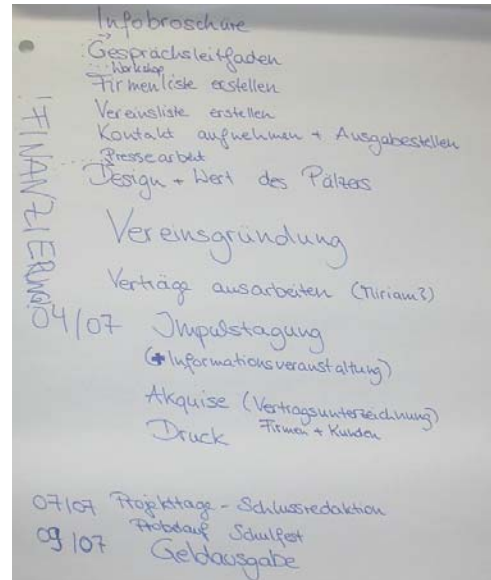 Infobroschüre
Gesprächsleitfaden
Workshop
Firmenliste erstellen
Vereinsliste erstellen
Kontakt aufnehmen + Ausgabestellen
Pressearbeit
Design + Wert des Pälzers
! FINANZIERUNG!
Vereinsgründung
Verträge ausarbeiten (Miriam?)
04/07 Impulstagung
(+ Informationsveranstaltung)
Akquise (Vertragsunterzeichnung)
Druck Firmen + Kunden
07/07 Projekttage - Schlussredaktion
Probelauf Schulfest
09/07 Geldausgabe